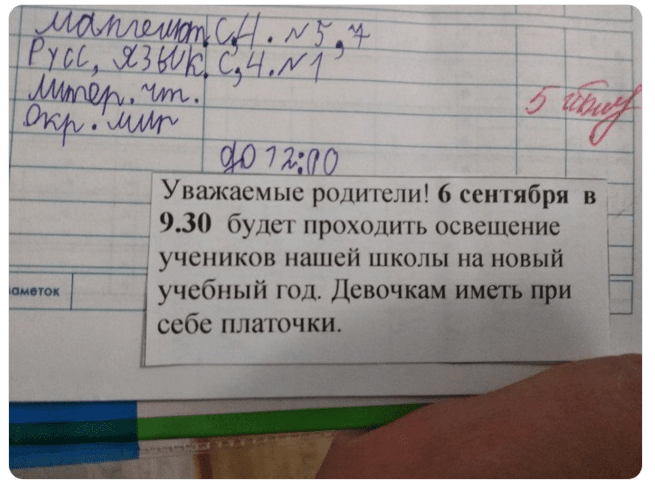 математ. С, 4. №5, 7
Русс, язык. С, 4. №1
литер. чт.
Окр. мир
5
до 12:00
Уважаемые родители! 6 сентября в
9.30 будет проходить освещение
учеников нашей школы на новый
учебный год. Девочкам иметь при
себе платочки.
аметок